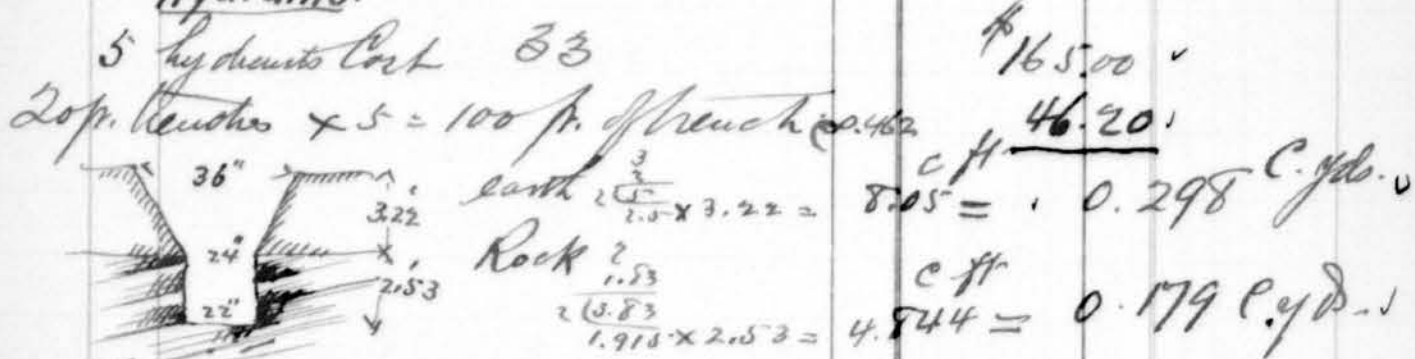 Hydrants.
5 hydrants Cost 33 $165.00 ✓
20 ft. trenches × 5 = 100 ft. of trench @ 0.462 46.20
36" 3.22' earth 3 2 2)5 2.5 × 3.22 = 8.05 c ft = 0.298 C. yds. ✓
24" 2.53' Rock 2 1.83 2)3.83 1.915 × 2.53 = 4.844 c ft = 0.179 C. yds. ✓
22"